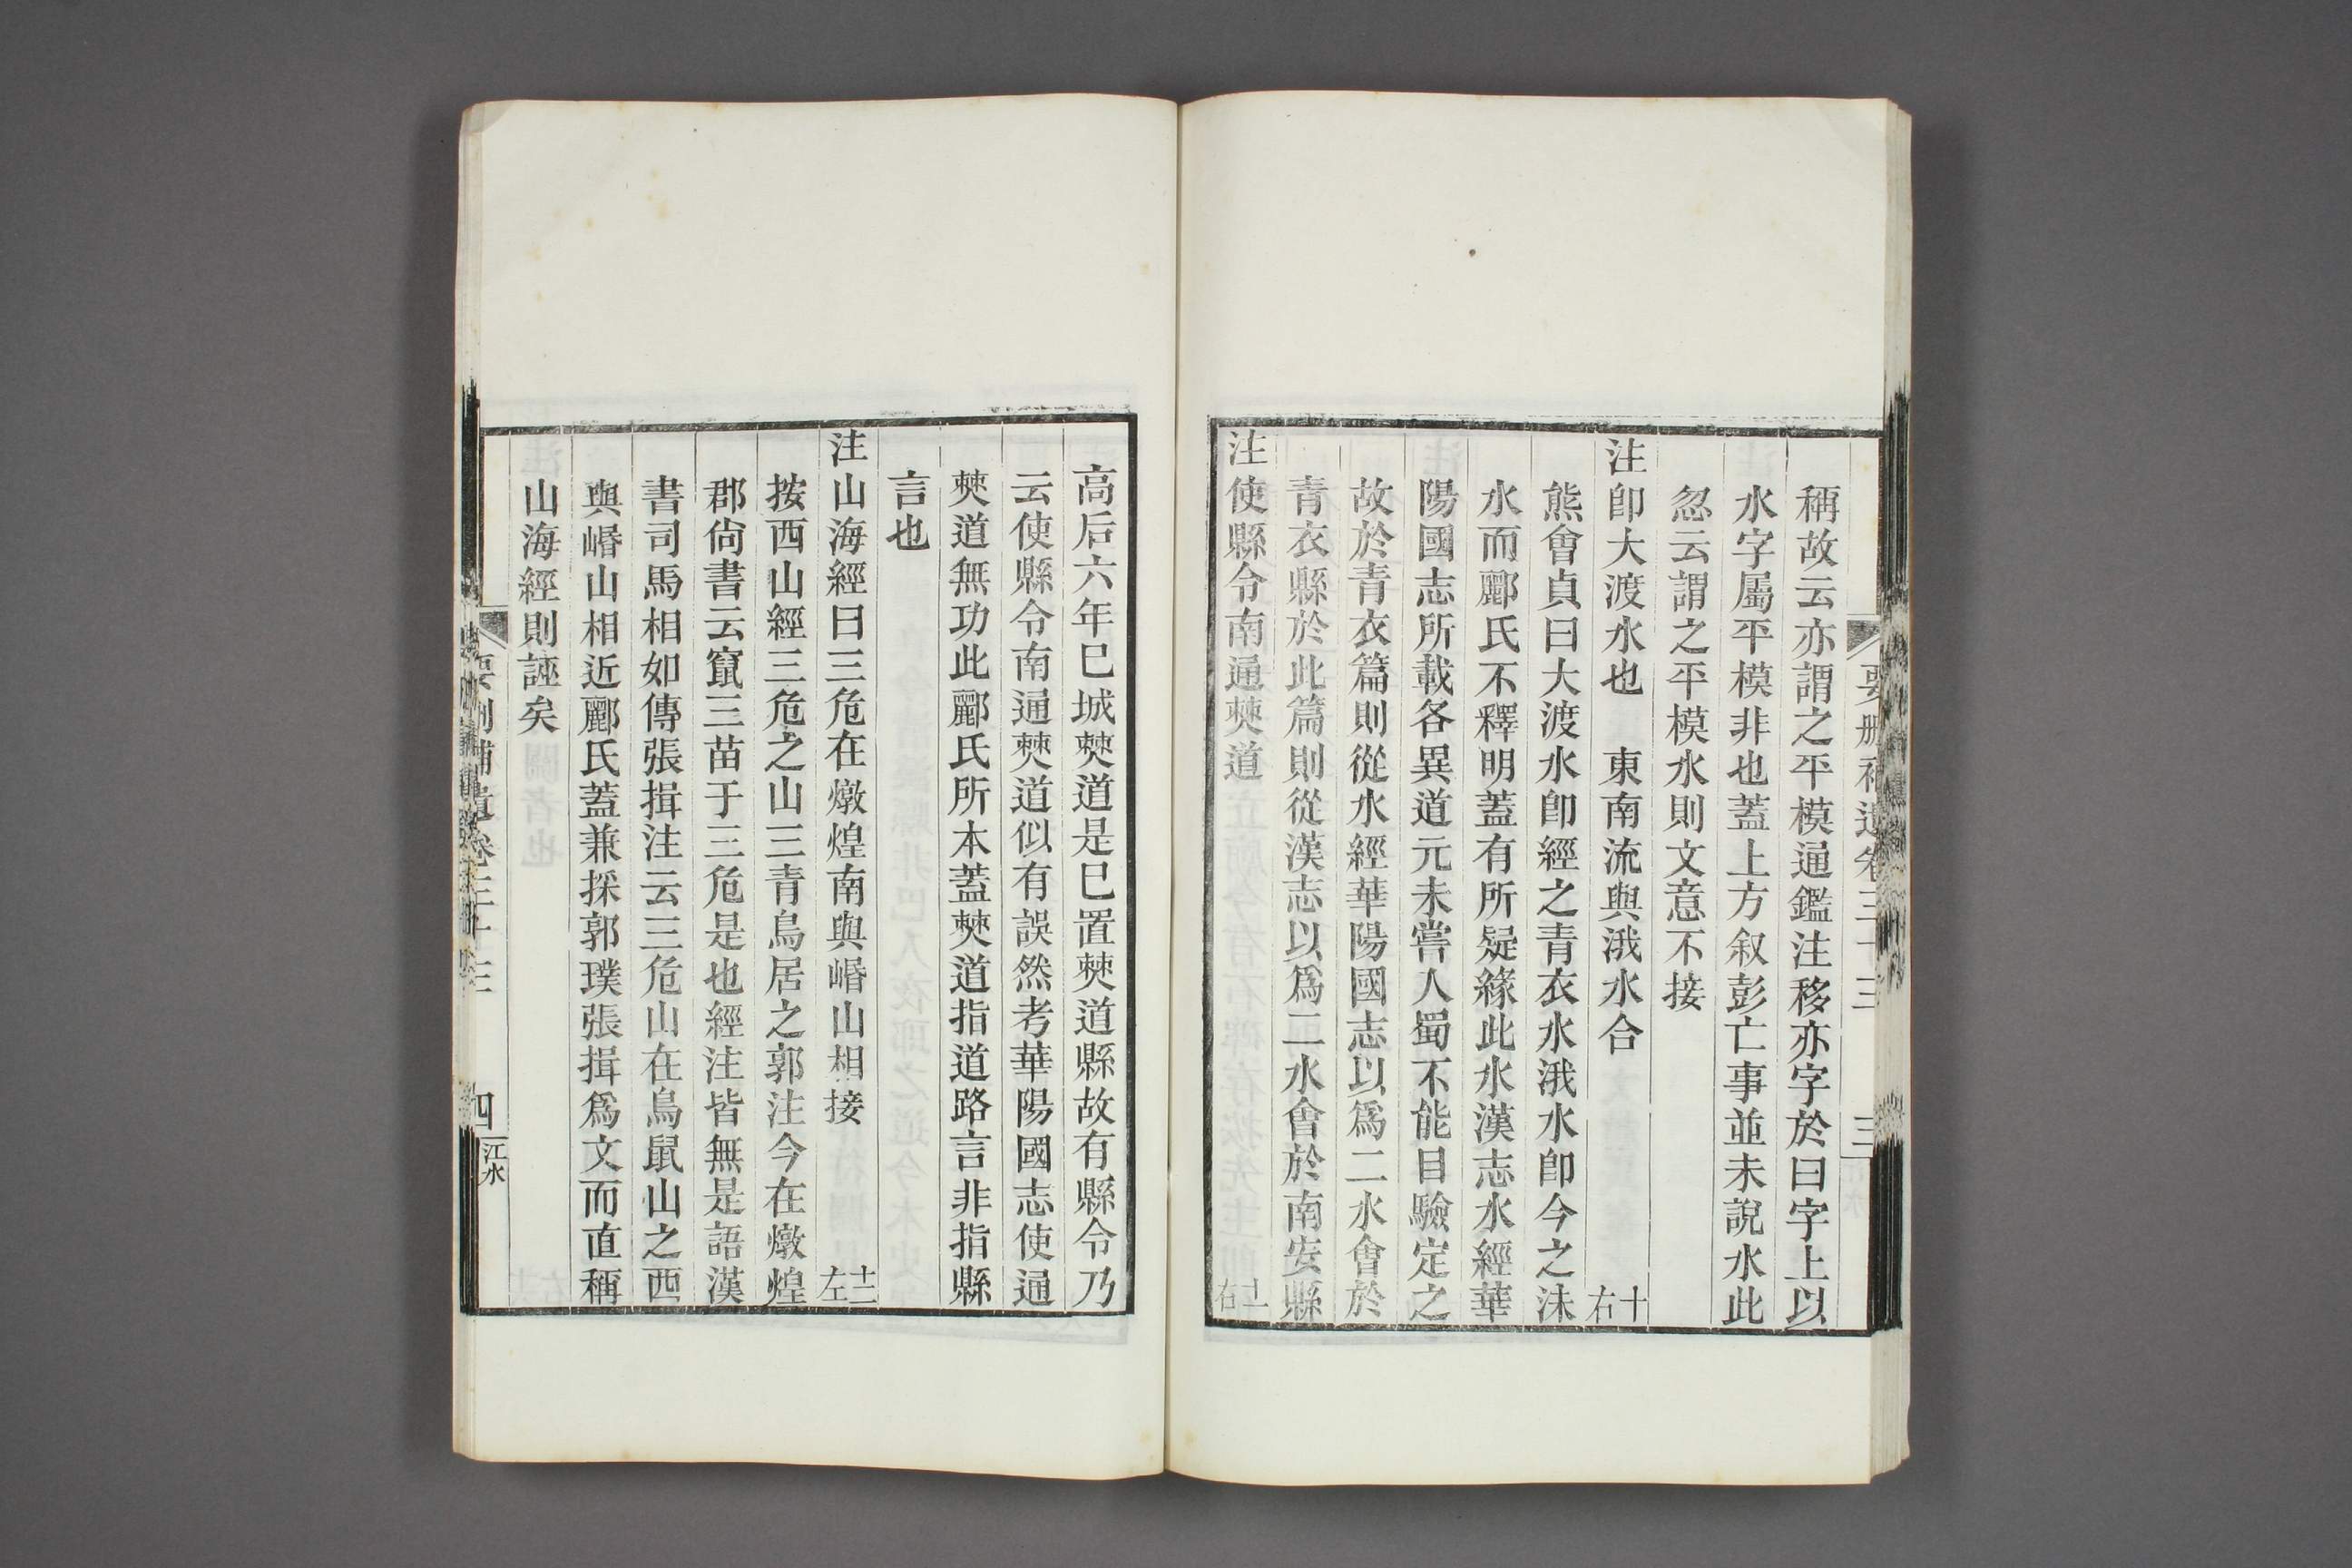 要刪補遺卷三十三 三
稱故云亦謂之平模通鑑注移亦字於曰字上以
水字屬平模非也蓋上方叙彭亡事並未說水此
忽云謂之平模水則文意不接
注卽大渡水也 東南流與涐水合 十右
熊會貞曰大渡水卽經之青衣水涐水卽今之沫
水而酈氏不釋明蓋有所疑緣此水漢志水經華
陽國志所載各異道元未嘗人蜀不能目驗定之
故於青衣篇則從水經華陽國志以爲二水會於
青衣縣於此篇則從漢志以爲二水會於南安縣
注使縣令南通僰道 十一右
高后六年巳城僰道是巳置僰道縣故有縣令乃
云使縣令南通僰道似有誤然考華陽國志使通
僰道無功此酈氏所本蓋僰道指道路言非指縣
言也
注山海經曰三危在燉煌南與崏山相接 十二左
按西山經三危之山三青鳥居之郭注今在燉煌
郡尙書云竄三苗于三危是也經注皆無是語漢
書司馬相如傳張揖注云三危山在鳥鼠山之西
與崏山相近酈氏蓋兼採郭璞張揖爲文而直稱
山海經則誣矣
要刪補遺卷三十三 四 江水